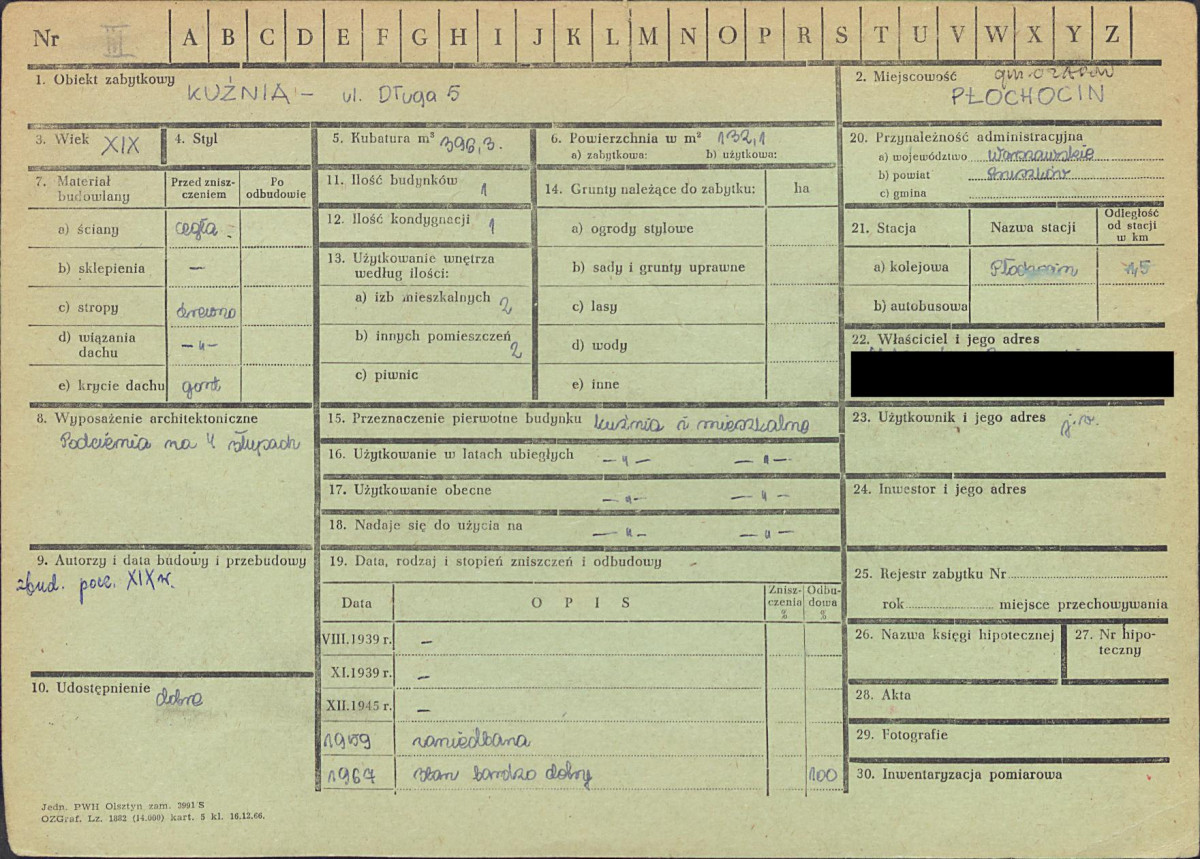 Nr III A B C D E F G H I J K L M N O P R S T U V W X Y Z
1. Obiekt zabytkowy KUŹNIA – ul. Długa 5
2. Miejscowość gm. OŻARÓW
PŁOCHOCIN
3. Wiek XIX
4. Styl
5. Kubatura m³ 396,3.
6. Powierzchnia w m² 132,1
a) zabytkowa: b) użytkowa:
7. Materiał budowlany
Przed zniszczeniem
Po odbudowie
a) ściany cegła
b) sklepienia —
c) stropy drewno
d) wiązania dachu —„—
e) krycie dachu gont
8. Wyposażenie architektoniczne
Podcienia na 4 słupach
9. Autorzy i data budowy i przebudowy
zbud. pocz. XIX w.
10. Udostępnienie dobre
11. Ilość budynków 1
12. Ilość kondygnacji 1
13. Użytkowanie wnętrza
według ilości:
a) izb mieszkalnych 2
b) innych pomieszczeń 2
c) piwnic
14. Grunty należące do zabytku: ha
a) ogrody stylowe
b) sady i grunty uprawne
c) lasy
d) wody
e) inne
15. Przeznaczenie pierwotne budynku kuźnia i mieszkalne
16. Użytkowanie w latach ubiegłych —„— —„—
17. Użytkowanie obecne —„— —„—
18. Nadaje się do użycia na —„— —„—
19. Data, rodzaj i stopień zniszczeń i odbudowy
Data OPIS Zniszczenia % Odbudowa %
VIII.1939 r. —
XI.1939 r. —
XII.1945 r. —
1959 zaniedbana
1967 stan bardzo dobry 100
20. Przynależność administracyjna
a) województwo Warszawskie
b) powiat Pruszków
c) gmina
21. Stacja Nazwa stacji Odległość od stacji w km
a) kolejowa Płochocin 1,5
b) autobusowa
22. Właściciel i jego adres
23. Użytkownik i jego adres j.w.
24. Inwestor i jego adres
25. Rejestr zabytku Nr
rok miejsce przechowywania
26. Nazwa księgi hipotecznej
27. Nr hipoteczny
28. Akta
29. Fotografie
30. Inwentaryzacja pomiarowa
Jedn. PWH Olsztyn zam. 2991 S
OZGraf. Lz. 1882 (14.000) kart. 5 kl. 16.12.66.